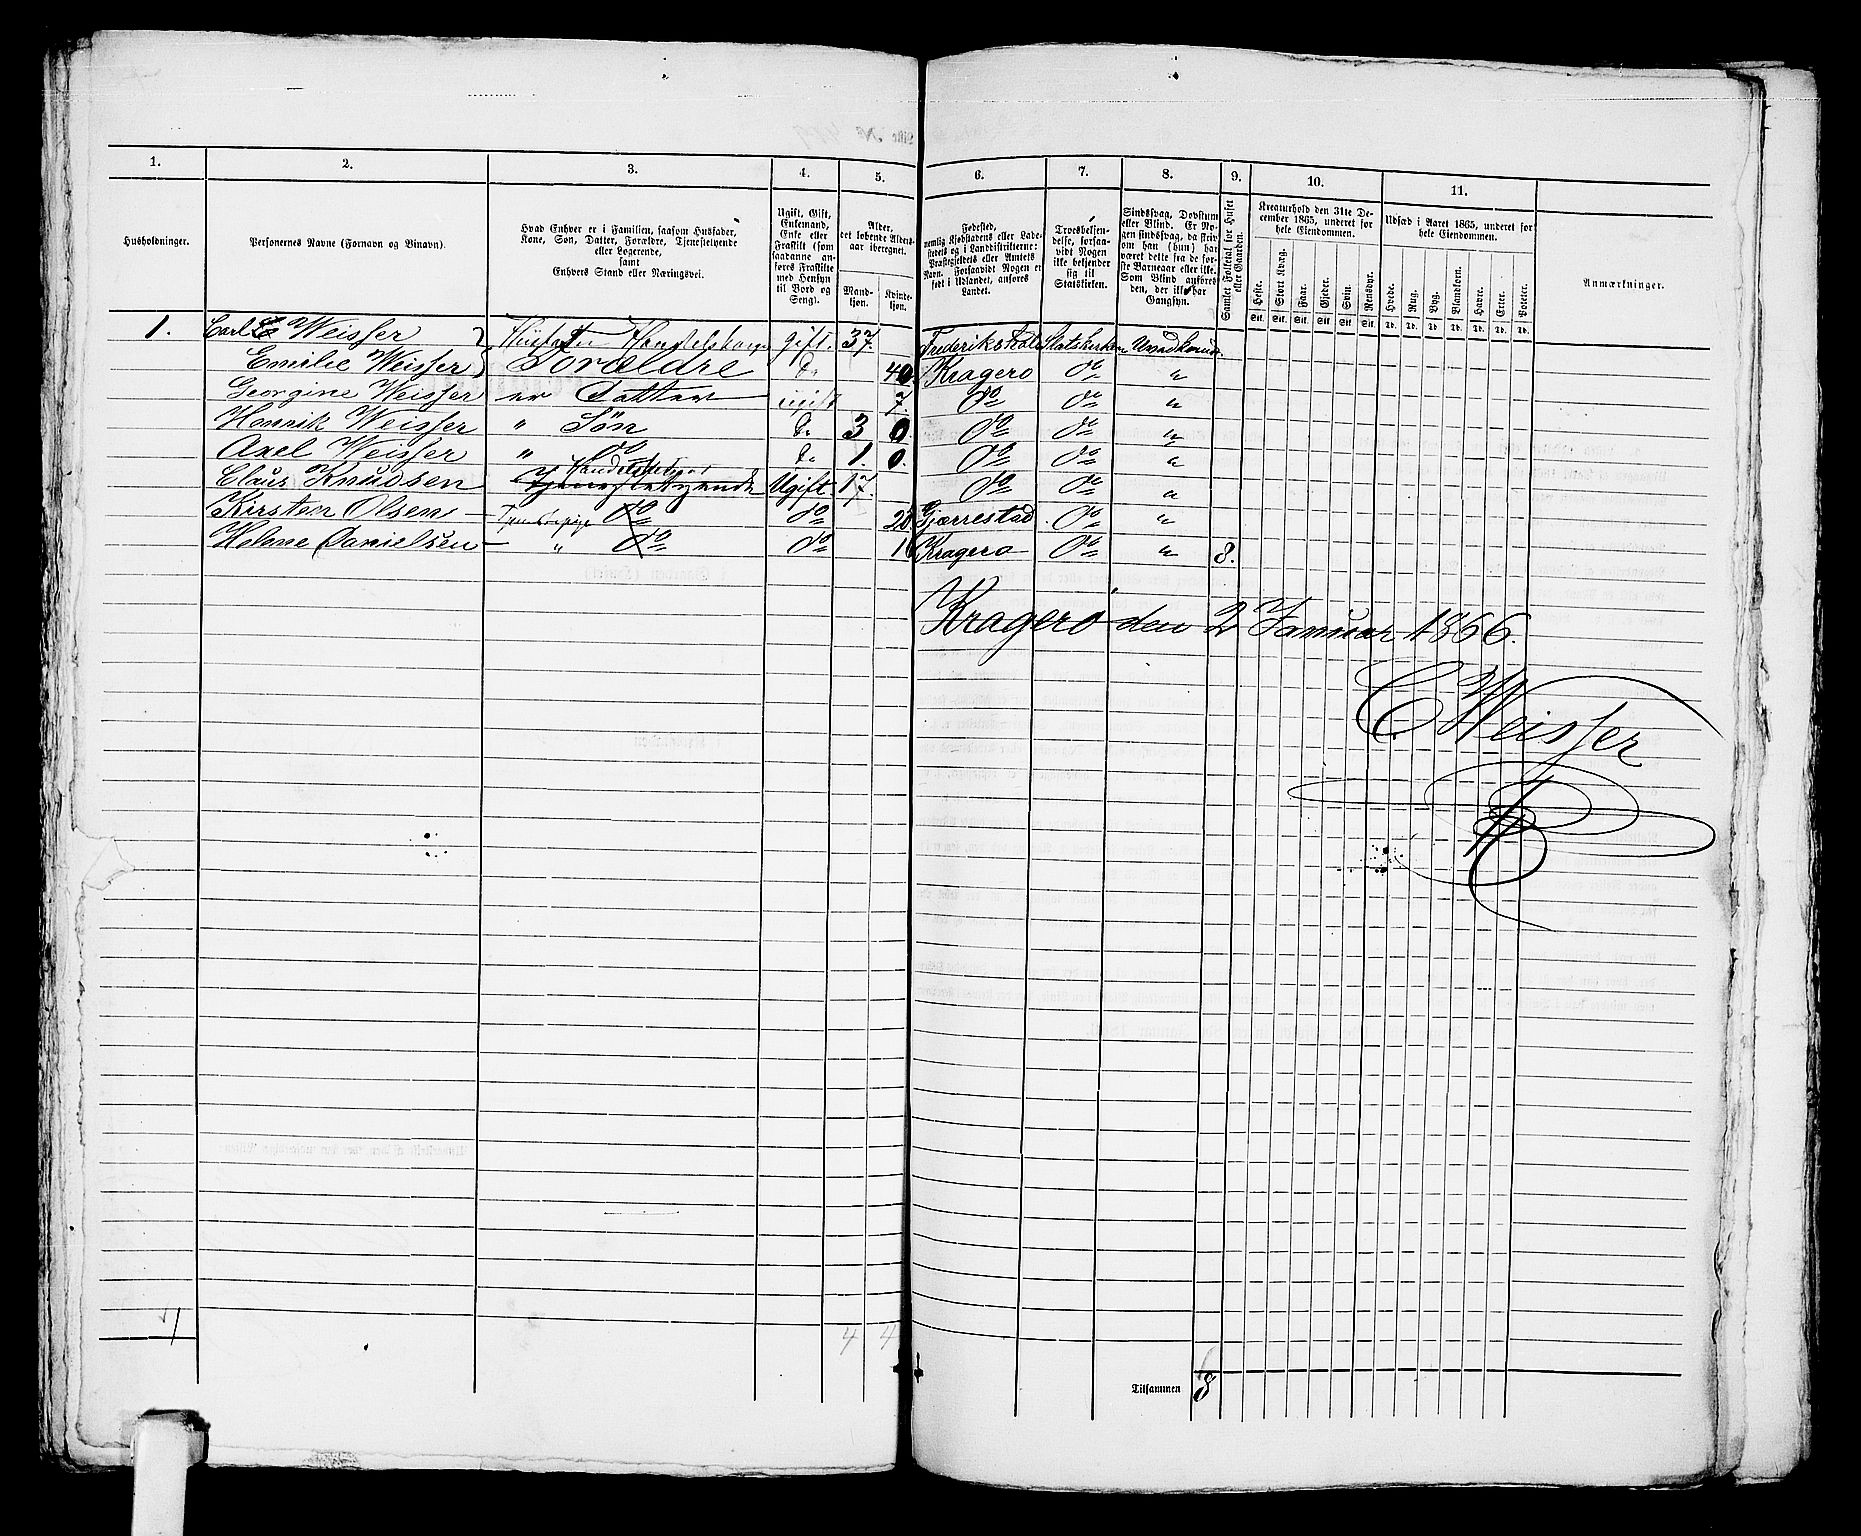 1. 2. 3. 4. 5. 6. 7. 8. 9. 10. 11.
Husholdninger.
Personernes Navne (Fornavn og Binavn).
Hvad Enhver er i Familien, saasom Husfader,
Kone, Søn, Datter, Forældre, Tjenstetyende
eller Logerende,
samt
Enhvers Stand eller Næringsvei.
Ugift, Gift,
Enkemand,
Enke eller
Fraskilt (som
saadanne an-
føres Fraskilte
med Hensyn
til Bord og
Seng).
Alder,
det løbende Alders-
aar iberegnet.
Mand-
kjøn.
Kvinde-
kjøn.
Fødested,
nemlig Kjøbstadens eller Lade-
stedets og i Landdistrikterne:
Præstegjeldets eller Amtets
Navn. Forsaavidt Nogen er
født i Udlandet, anføres
Landet.
Troesbekjen-
delse, forsaa-
vidt Nogen
ikke bekjender
sig til
Statskirken.
Sindssvag, Døvstum
eller Blind. Er No-
gen sindssvag, da skriv
om han (hun) har
været dette fra de før-
ste Barneaar eller ikke.
Som Blind anføres
den, der ikke har
Gangsyn.
Samlet Folketal for Huset
eller Gaarden.
Kreaturhold den 31te De-
cember 1865, underet for
hele Eiendommen.
Heste. Stort Kvæg. Faar. Gjeder. Svin. Rensdyr.
Stk. Stk. Stk. Stk. Stk. Stk.
Udsæd i Aaret 1865, underet for
hele Eiendommen.
Hvede. Rug. Byg. Blandkorn. Havre. Erter. Poteter.
Td. Td. Td. Td. Td. Td. Td.
Anmærkninger.
1. Carl E Weisser gift. 37. Frederikshald Statskirken
Emilie Weisser Forældre Do 40 Kragerø do "
Georgine Weisser er Datter ugift 7. do do "
Henrik Weisser " Søn Do 3 0 do do "
Axel Weisser " do Do 1. 0. do do "
Claus Knudsen Tjenestetyende Ugift. 17. do do "
Kirsten Olsen do do 28 Gjerrestad do "
Helene Danielsen " do do 16 Kragerø do " 8.
Kragerø den 2 Januar 1866.
C Weisser
1 4 4
Tilsammen 8